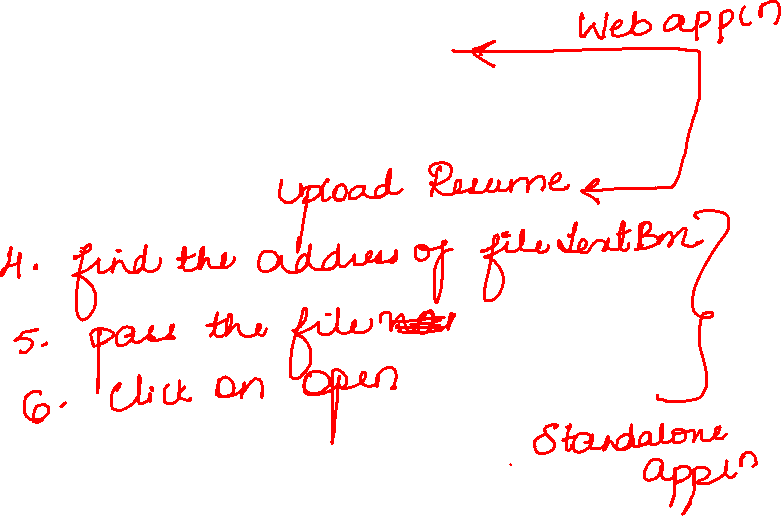 Web appln
Upload Resume
4. find the address of file text Box
5. pass the file
6. Click on open
Standalone
appln